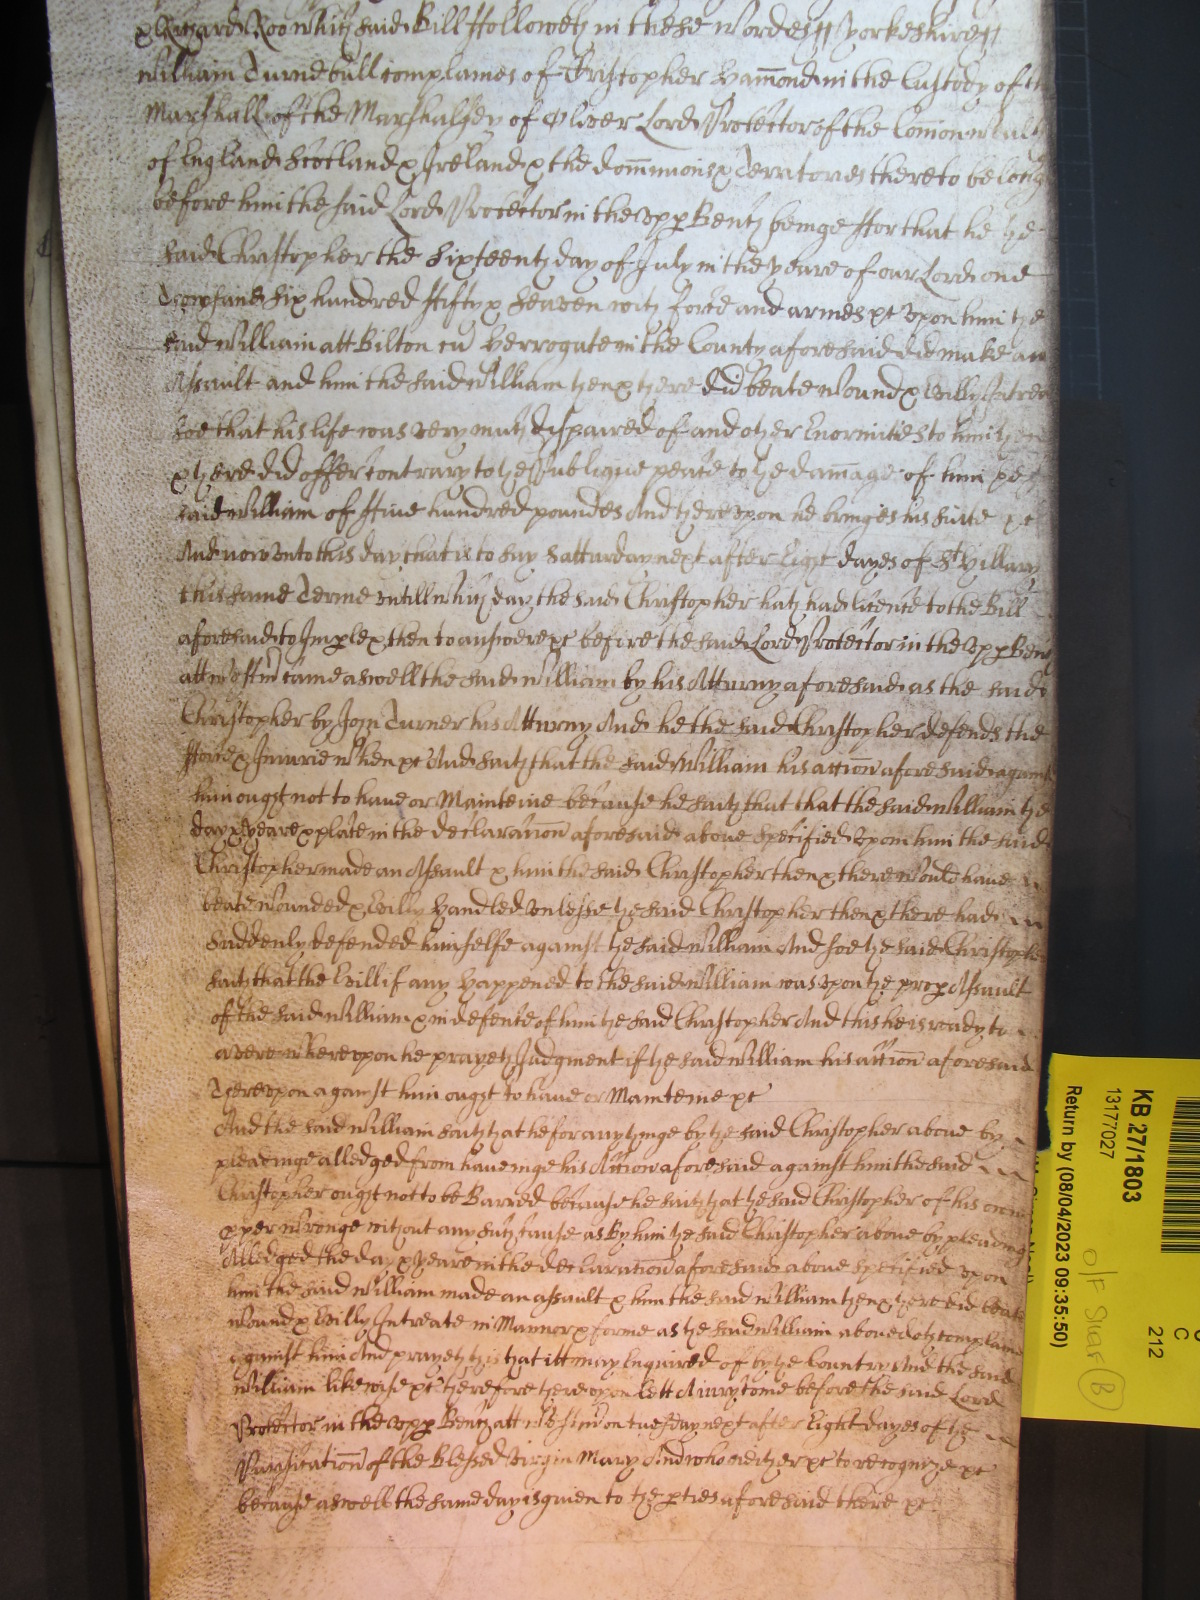 & Richard Roo which said Bill ffolloweth in these wordes // Yorkeshire //
William Turnebull complaines of Christopher Hamond in the Custody of th
Marshall of the Marshalsey of Oliver Lord Protector of the Comonweal
of England Scotland & Ireland & the dominions & Territories thereto belong
before him the said Lord Protector in the upp Bench beinge ffor that he the
said Christopher the sixteenth day of July in the yeare of our Lord one
Thowsand six hundred ffifty & seaven with force and armes &c upon him the
said William att Bilton cu Herrogate in the County aforesaid did make an
Assault and him the said William then & there did beate wound & Evilly Intrea
soe that his life was very much dispaired of and other Enormities to him then
& there did offer contrary to the Publique peace to the damage of him the
said William of ffive hundred poundes And thereupon he bringes his suite &c
And now unto this day that is to say Satturday next after Eight dayes of St Hillary
this same Terme untill which day the said Christopher hath had licence to the Bill
aforesaid to Imple & then to answere &c before the said Lord Protector in the upp Benc
att Westmr came aswell the said William by his Atturny aforesaid as the said
Christopher by John Turner his Atturny And he the said Christopher defends the
fforce & Iniurie when &c And saith that the said William his action aforesaid against
him ought not to have or Mainteine because he saith that that the said William the
day & yeare & place in the declaration aforesaid above specified upon him the said
Christopher made an Assault & him the said Christopher then & there would have
beate wounded & Evilly Handled unlesse the said Christopher then & there had
suddenly defended himselfe against the said William And soe the said Christopher
saith that the Evill if any Happened to the said William was upon the prop Assault
of the said William & in defence of him the said Christopher And this he is ready to
avere whereupon he prayeth Judgment if the said William his action aforesaid
Thereupon against him ought to have or Mainteine &c
And the said William saith that he for any thinge by the said Christopher above by
pleadinge alledged from haveinge his Action aforesaid against him the said
Christopher ought not to be Barred because he saith that the said Christopher of his owne
pper wronge without any such cause as By him the said Christopher above by pleading
Alledged the day & yeare in the declaration aforesaid above specified upon
him the said William made an assault & him the said William then & there did beate
wound & Evilly Intreate in Mannor & forme as the said William above doth complaine
against him And prayeth this that itt may Enquired of by the Country And the said
William likewise &c Therefore thereupon lett A iury come before the said Lord
Protector in the upp Bench att Westmr on tuesday next after Eight dayes of the
Purificatiion of the Blessed Virgin Mary And who neither &c to recognize &c
because aswell the same day is given to the pties aforesaid there &c
KB 27/1803
13177027
Return by (08/04/2023 09:35:50)
212
C
O/F Star B